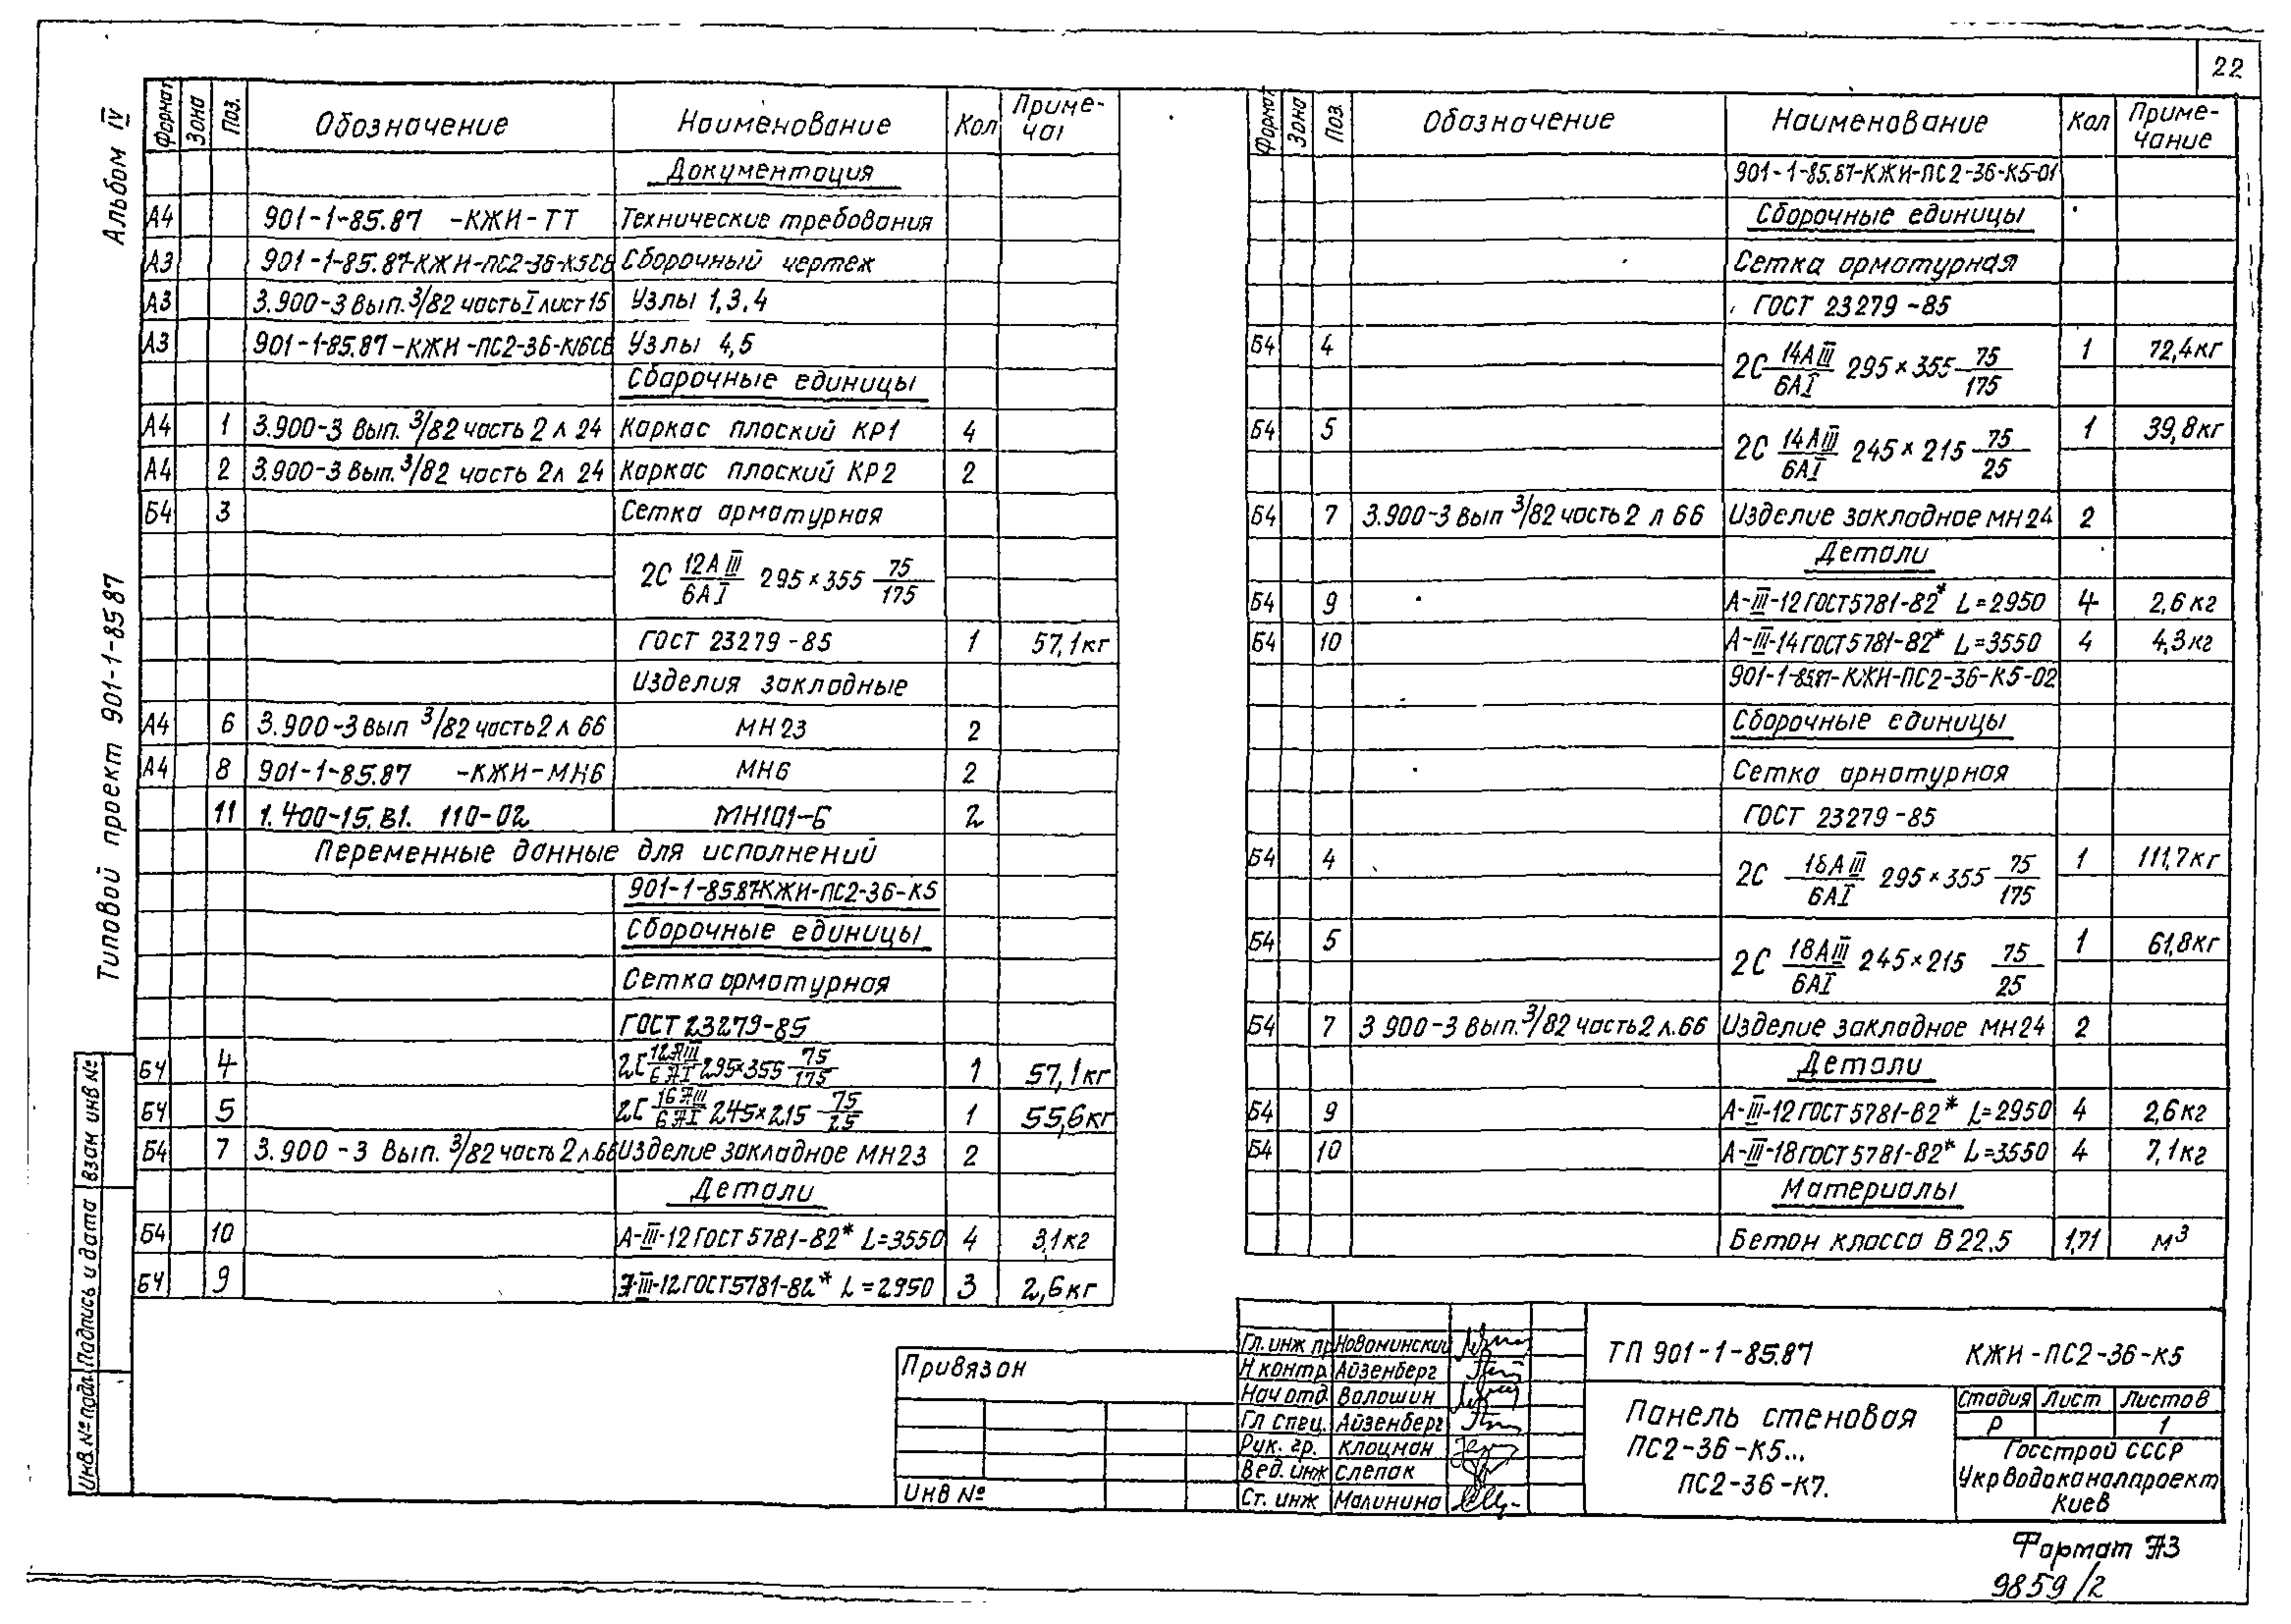 22
Альбом IV
Типовой проект 901-1-85 87
Формат Зона Поз. Обозначение Наименование Кол Приме-
чаι
Документация
А4 901-1-85.87 -КЖИ-ТТ Технические требования
А3 901-1-85.87-КЖИ-ПС2-36-К5СБ Сборочный чертеж
А3 3.900-3 Вып. 3/82 часть I лист 15 Узлы 1,3,4
А3 901-1-85.87-КЖИ-ПС2-36-К16СБ Узлы 4,5
Сборочные единицы
А4 1 3.900-3 Вып. 3/82 часть 2 л 24 Каркас плоский КР1 4
А4 2 3.900-3 Вып. 3/82 часть 2 л 24 Каркас плоский КР2 2
Б4 3 Сетка арматурная
2С 12АIII/6АI 295×355 75/175
ГОСТ 23279-85 1 57,1кг
Изделия закладные
А4 6 3.900-3 Вып 3/82 часть 2 л 66 МН23 2
А4 8 901-1-85.87 -КЖИ-МН6 МН6 2
11 1.400-15.В1. 110-02 МН101-6 2
Переменные данные для исполнений
901-1-85.87-КЖИ-ПС2-36-К5
Сборочные единицы
Сетка арматурная
ГОСТ 23279-85
Б4 4 2С 12АIII/6АI 295×355 75/175 1 57,1кг
Б4 5 2С 16АIII/6АI 245×215 75/25 1 55,6кг
Б4 7 3.900-3 Вып. 3/82 часть 2 л.66 Изделие закладное МН23 2
Детали
Б4 10 А-III-12 ГОСТ 5781-82* L=3550 4 3,1кг
Б4 9 А-III-12 ГОСТ 5781-82* L=2950 3 2,6кг
Формат Зона Поз. Обозначение Наименование Кол Приме-
чание
901-1-85.87-КЖИ-ПС2-36-К5-01
Сборочные единицы
Сетка арматурная
ГОСТ 23279-85
Б4 4 2С 14АIII/6АI 295×355 75/175 1 72,4кг
Б4 5 2С 14АIII/6АI 245×215 75/25 1 39,8кг
Б4 7 3.900-3 Вып 3/82 часть 2 л 66 Изделие закладное МН24 2
Детали
Б4 9 А-III-12 ГОСТ 5781-82* L=2950 4 2,6кг
Б4 10 А-III-14 ГОСТ 5781-82* L=3550 4 4,3кг
901-1-85.87-КЖИ-ПС2-36-К5-02
Сборочные единицы
Сетка арматурная
ГОСТ 23279-85
Б4 4 2С 18АIII/6АI 295×355 75/175 1 111,7кг
Б4 5 2С 18АIII/6АI 245×215 75/25 1 61,8кг
Б4 7 3 900-3 Вып. 3/82 часть 2 л.66 Изделие закладное МН24 2
Детали
Б4 9 А-III-12 ГОСТ 5781-82* L=2950 4 2,6кг
Б4 10 А-III-18 ГОСТ 5781-82* L=3550 4 7,1кг
Материалы
Бетон класса В 22.5 1,71 м3
Инв № подл. Подпись и дата Взам инв №
Привязан
Инв №
Гл. инж пр Новоминский
Н контр Айзенберг
Нач отд. Волошин
Гл спец. Айзенберг
Рук. гр. Клоцман
Вед. инж Слепак
Ст. инж Малинина
ТП 901-1-85.87 КЖИ-ПС2-36-К5
Панель стеновая
ПС2-36-К5...
ПС2-36-К7.
Стадия Лист Листов
Р 1
Госстрой СССР
Укрводоканалпроект
Киев
Формат А3
9859/2